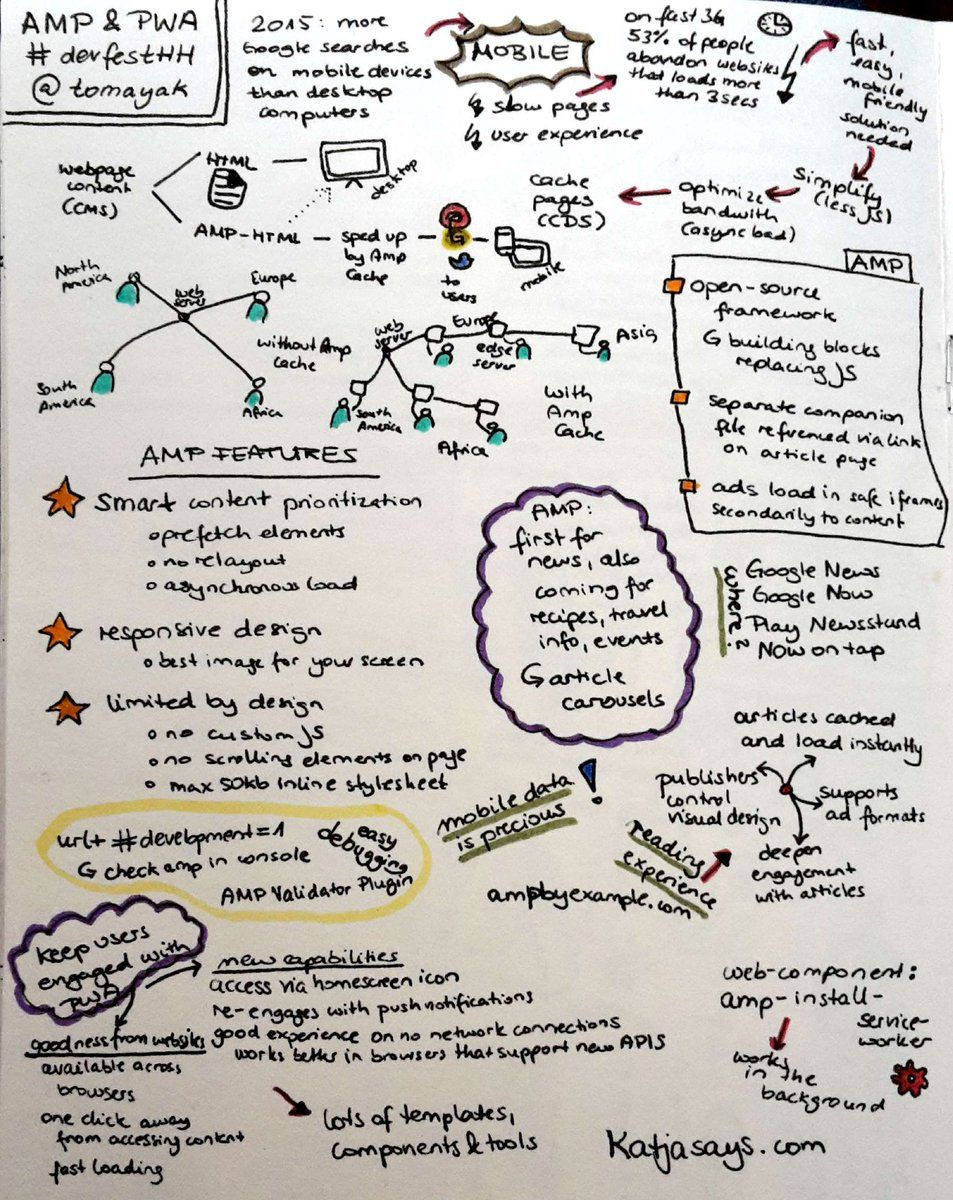 AMP & PWA
# devfestHH
@tomayak
2015: more
Google searches
on mobile devices
than desktop
computers
MOBILE
slow pages
user experience
on fast 3G
53% of people
abandon websites
that loads more
than 3secs
fast,
easy,
mobile
friendly
solution
needed
simplify
(less JS)
optimize
bandwith
(async bad)
cache
pages
(CDS)
webpage
content
(CMS)
HTML
desktop
AMP-HTML
sped up
by Amp
Cache
G
to
users
mobile
North
America
web
server
Europe
South
America
Africa
without Amp
Cache
web
server
Europe
edge
server
Asia
South
America
Africa
with
Amp
Cache
AMP
open-source
framework
building blocks
replacing JS
separate companion
file refrenced via link
on article page
ads load in safe iframes
secondarily to content
AMP FEATURES
smart content prioritization
prefetch elements
no relayout
asynchronous load
responsive design
best image for your screen
limited by design
no custom JS
no scrolling elements on page
max 50kb inline stylesheet
AMP:
first for
news, also
coming for
recipes, travel
info, events
article
carousels
where?
Google News
Google Now
Play Newsstand
NOW on tap
articles cached
and load instantly
publishers
control
visual design
supports
ad formats
deepen
engagement
with articles
reading
experience
mobile data
is precious
!
ampbyexample.com
url+ #development=1
check amp in console
easy
debugging
AMP Validator Plugin
keep users
engaged with
PWA
new capabilities
access via homescreen icon
re-engages with push notifications
good experience on no network connections
works bether in browsers that support new APIS
goodness from websites
available across
browsers
one click away
from accessing content
fast loading
lots of templates,
components & tools
web-component:
amp-install-
service-
worker
works
in the
background
Katjasays.com